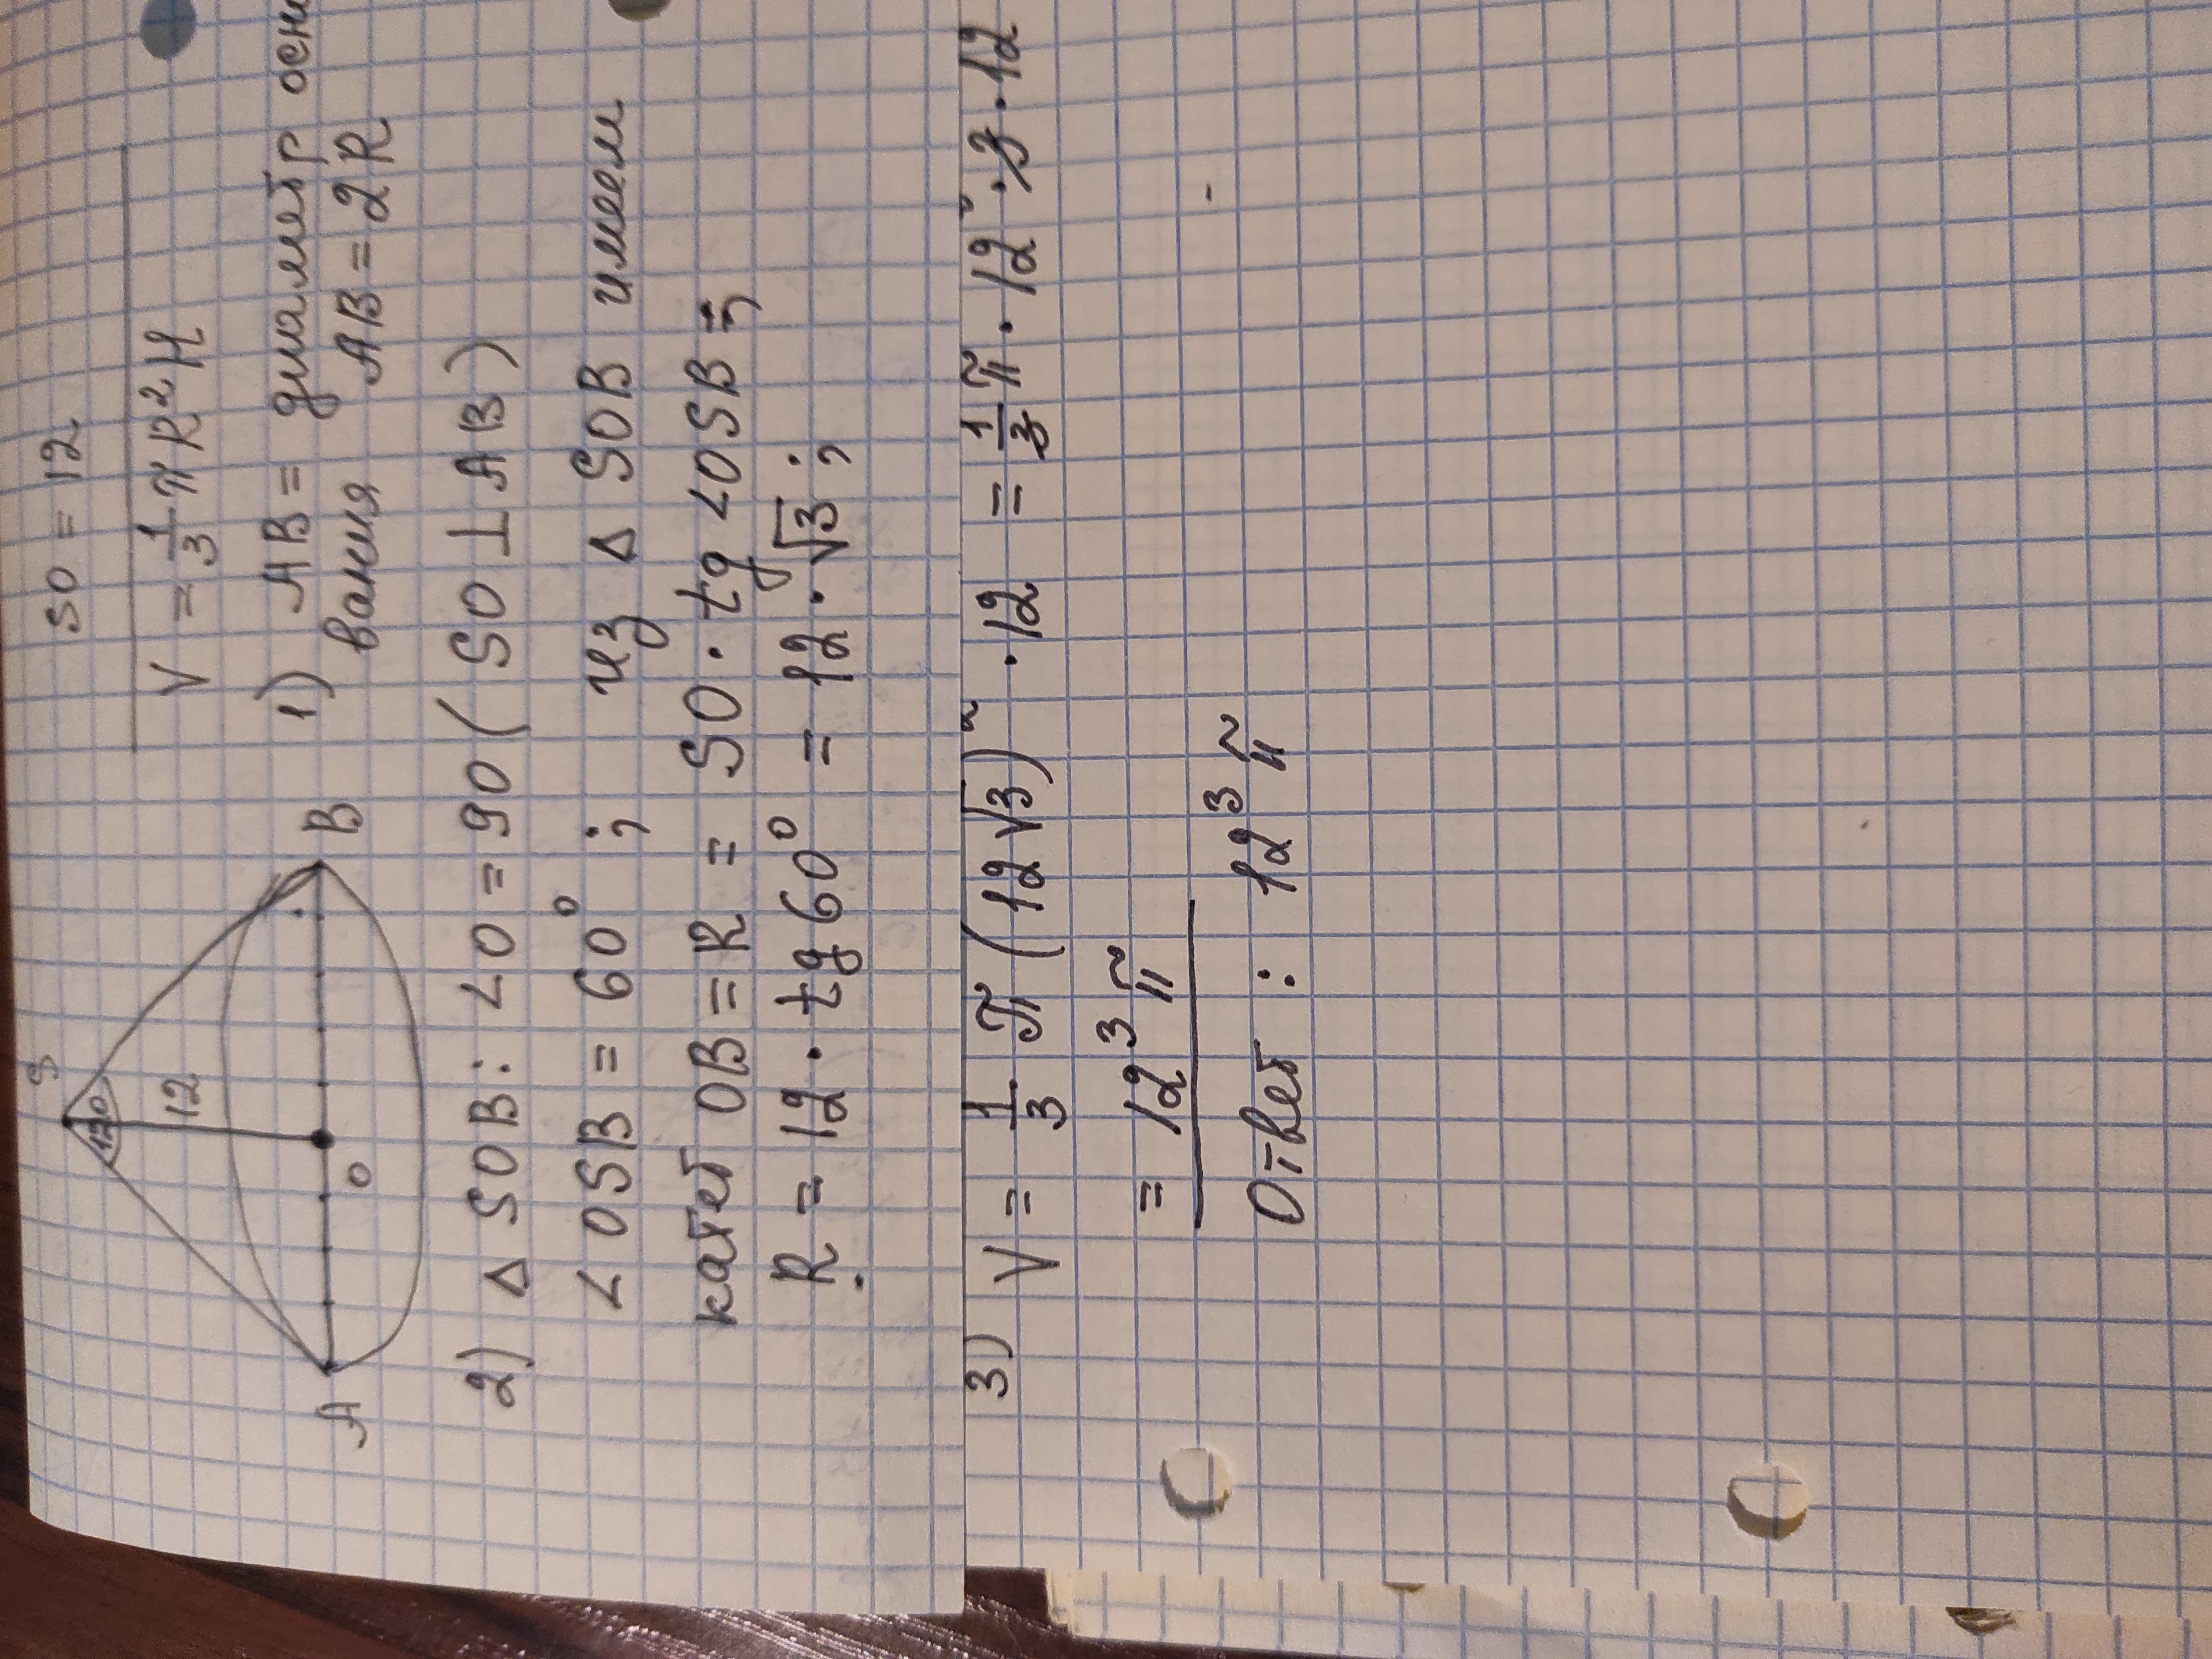 SO = 12
V = 1/3 πR²H
S
120
12
O
A
B
1) AB = диаметр осно
вания AB = 2R
2) Δ SOB: ∠O = 90 (SO ⊥ AB)
∠OSB = 60° ; из Δ SOB имеем
катет OB = R = SO · tg ∠OSB = ;
R = 12 · tg 60° = 12 · √3 ;
3) V = 1/3 π (12√3)² · 12 = 1/3 π · 12² · 3 · 12
= 12³ π
Ответ : 12³ π